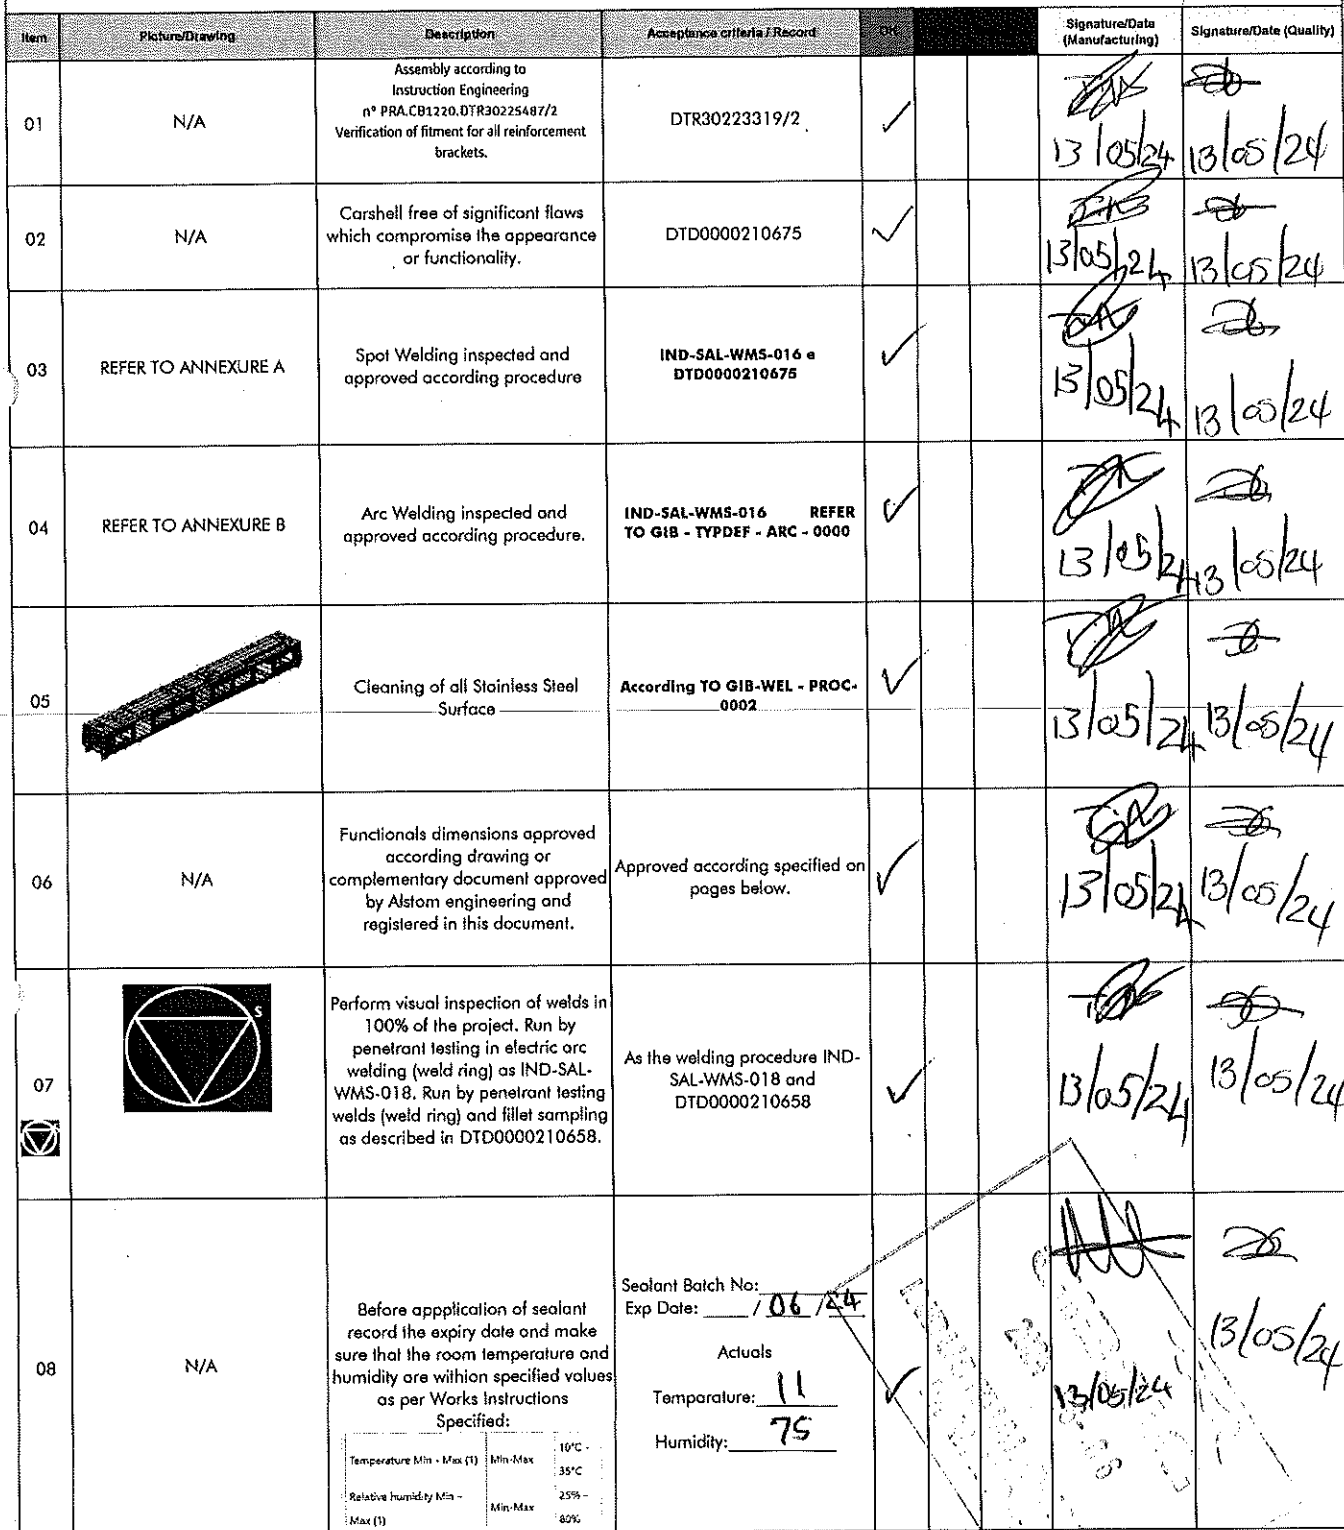 Item Picture/Drawing Description Acceptance criteria / Record OK Signature/Data (Manufacturing) Signature/Date (Quality)
01
N/A
Assembly according to
Instruction Engineering
n° PRA.CB1220.DTR30225487/2
Verification of fitment for all reinforcement
brackets.
DTR30223319/2
✓
13/05/24
13/05/24
02
N/A
Carshell free of significant flaws
which compromise the appearance
or functionality.
DTD0000210675
✓
13/05/24
13/05/24
03
REFER TO ANNEXURE A
Spot Welding inspected and
approved according procedure
IND-SAL-WMS-016 e
DTD0000210675
✓
13/05/24
13/05/24
04
REFER TO ANNEXURE B
Arc Welding inspected and
approved according procedure.
IND-SAL-WMS-016 REFER
TO GIB - TYPDEF - ARC - 0000
✓
13/05/24
13/05/24
05
Cleaning of all Stainless Steel
Surface
According TO GIB-WEL - PROC-
0002
✓
13/05/24
13/05/24
06
N/A
Functionals dimensions approved
according drawing or
complementary document approved
by Alstom engineering and
registered in this document.
Approved according specified on
pages below.
✓
13/05/24
13/05/24
07
S
Perform visual inspection of welds in
100% of the project. Run by
penetrant testing in electric arc
welding (weld ring) as IND-SAL-
WMS-018. Run by penetrant testing
welds (weld ring) and fillet sampling
as described in DTD0000210658.
As the welding procedure IND-
SAL-WMS-018 and
DTD0000210658
✓
13/05/24
13/05/24
08
N/A
Before appplication of sealant
record the expiry date and make
sure that the room temperature and
humidity are withion specified values
as per Works Instructions
Specified:
Temperature Min - Max (1) Min-Max 10°C -
35°C
Relative humidity Min -
Max (1) Min-Max 25% -
80%
Sealant Batch No:
Exp Date: ____ / 06 / 24
Actuals
Temparature: 11
Humidity: 75
✓
13/05/24
13/05/24